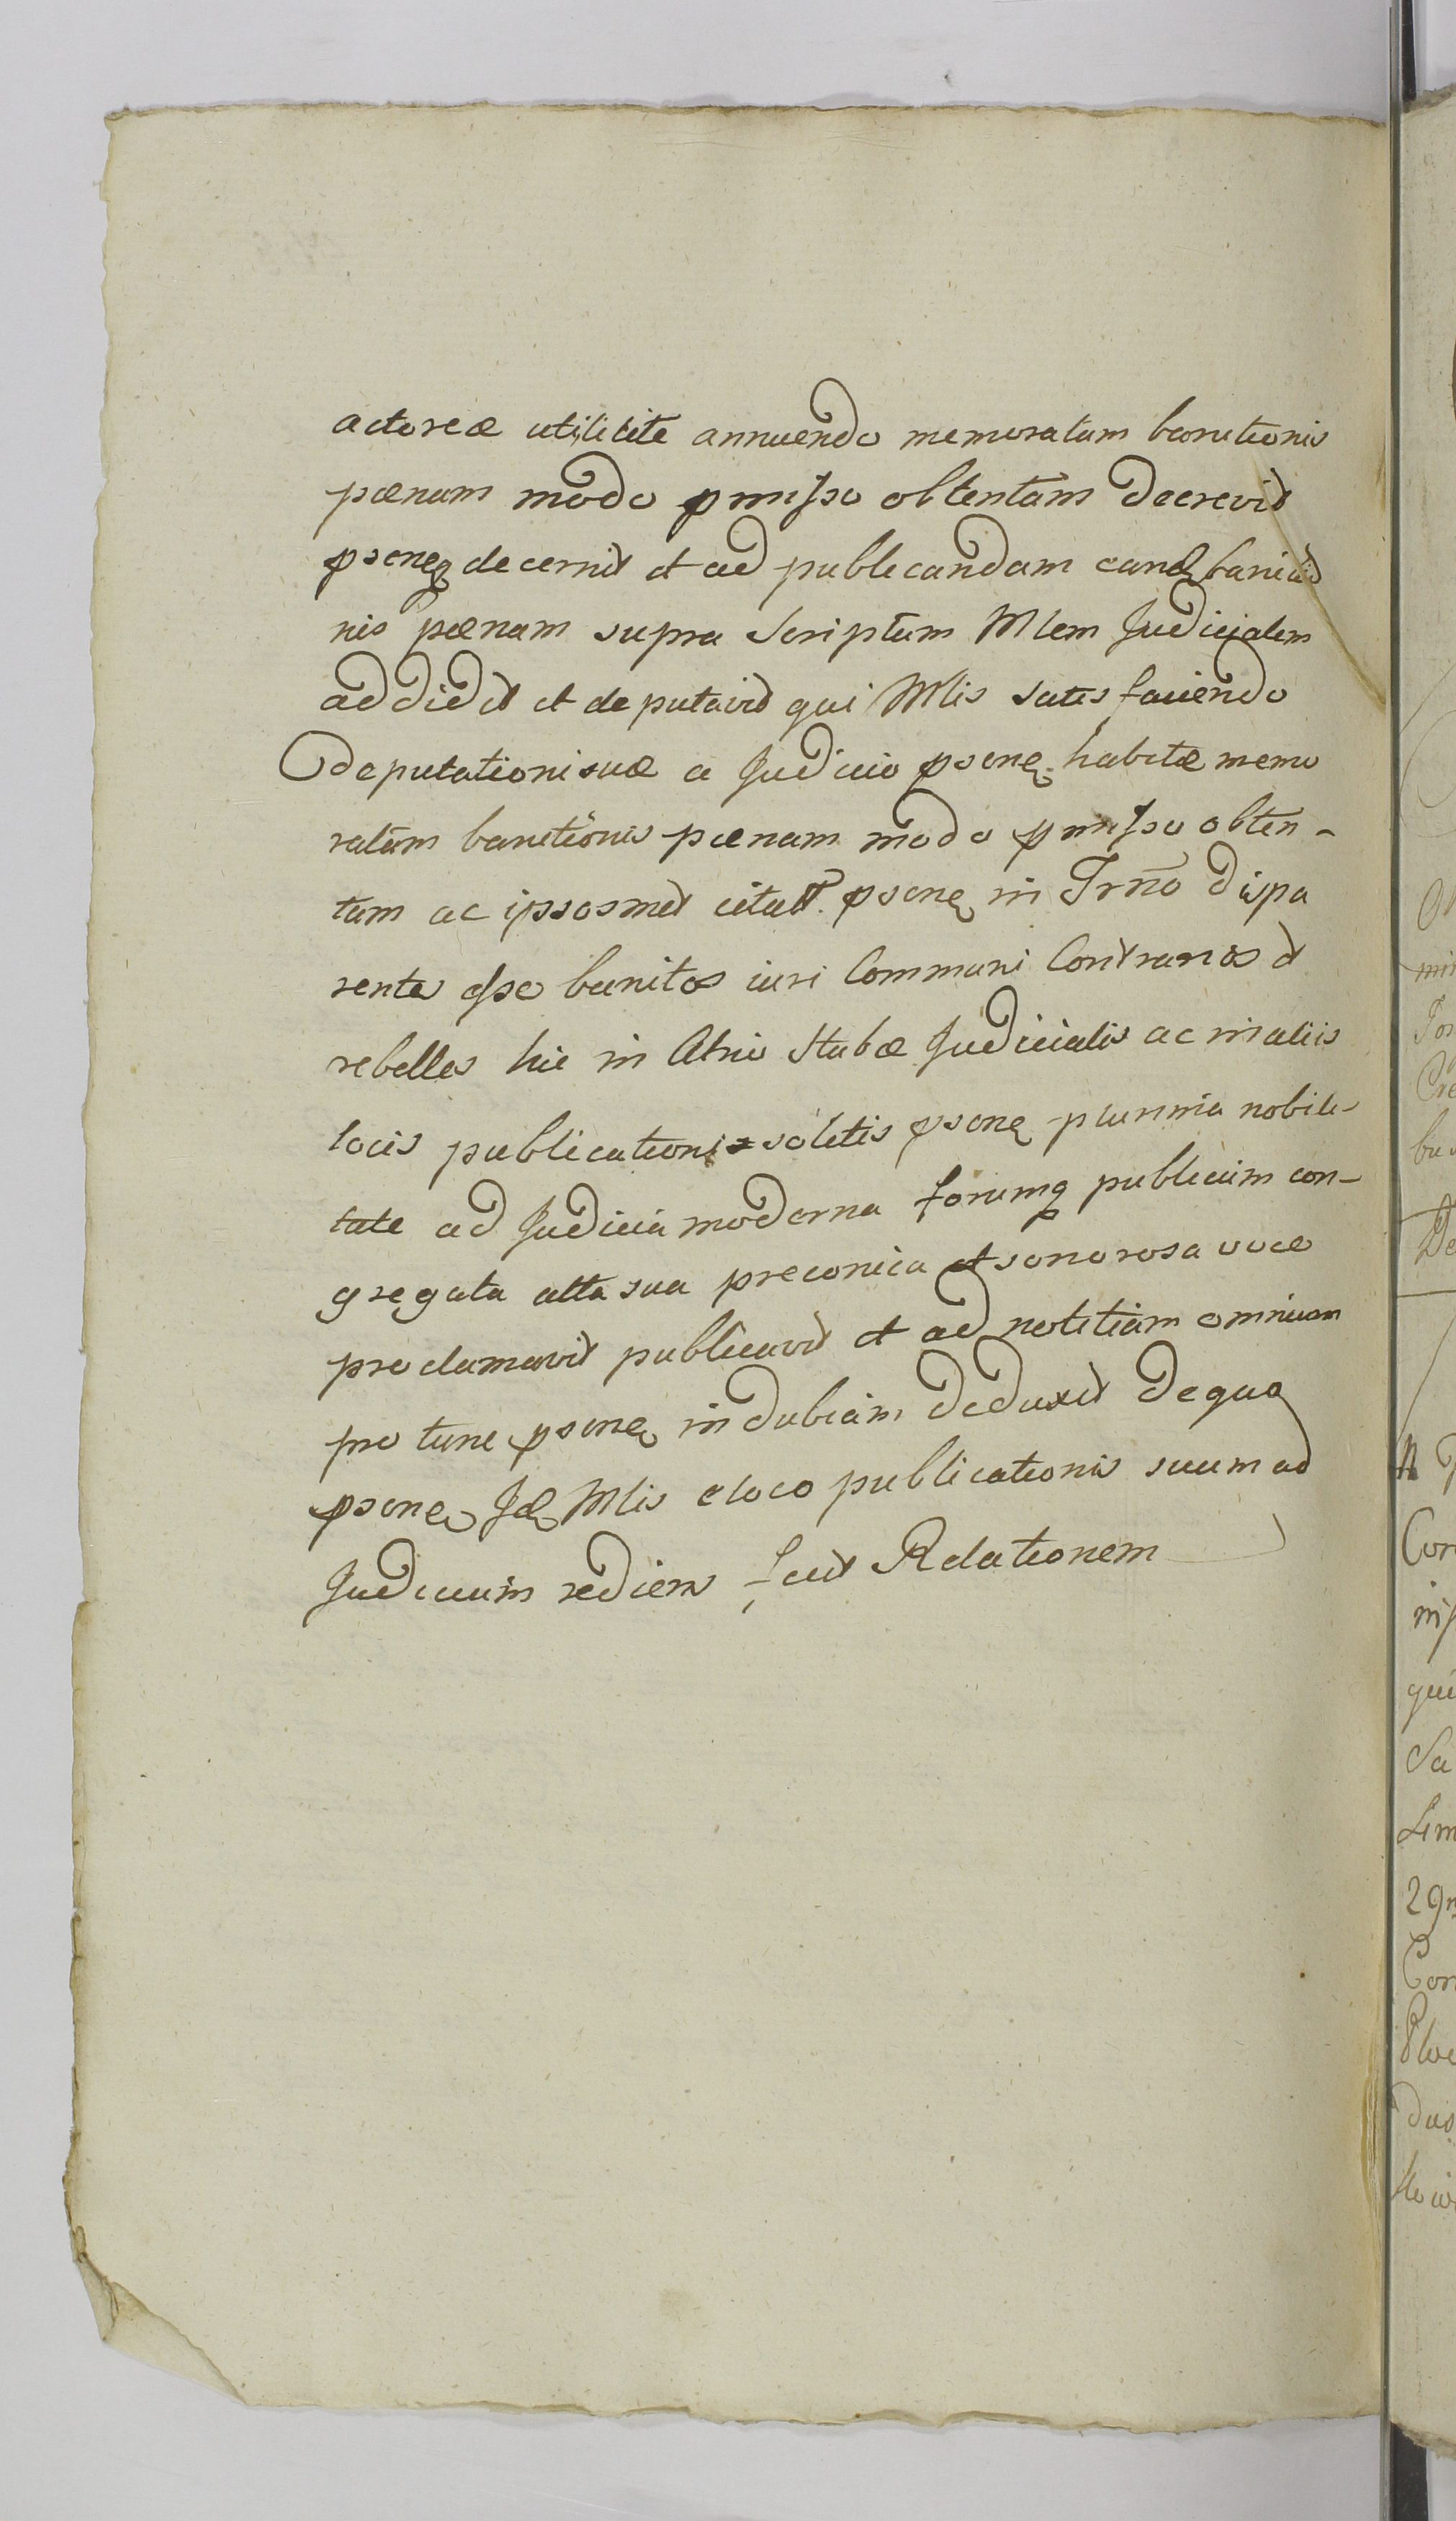 actoreæ utilitate annuendo memoratam banitionis
pœnam modo pmisso obtentam decrevit
psenq decernit et ad publicandam eand banitio
nis pœnam supra Scriptum Mlem Judicialem
addidit et deputavit qui Mlis satis faciendo
deputationi suæ a Judicio psenq habitæ memo
ratam banitionis pœnam modo pmisso obten-
tam ac ipsosmet citatt. psenq in Trno dispa
rentes esse banitos iuri Communi Contrarios et
rebelles hic in Atrio Stubæ Judicialis ac in aliis
locis publicationis solitis psenq plurima nobili-
tate ad Judicia moderna forumq publicum con-
gregata alta sua preconica et sonorosa voce
proclamavit publicavit et ad notitiam omnium
pro tunc psenq indubiam deduxit de qua
psenq Jd Mlis e loco publicationis suum ad
Judicium rediens fecit Relationem